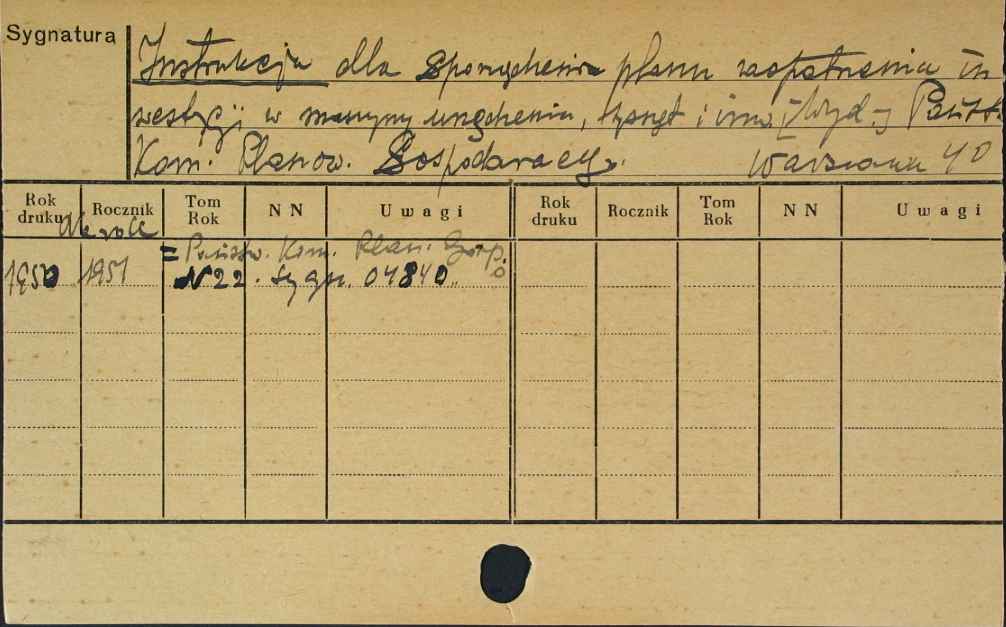 Sygnatura
Instrukcja dla sporządzenia planu zaopatrzenia in
westycji w maszyny urządzenia, sprzęt i inne [Wyd.-] Państw.
Kom. Planow. Gospodarczy. Warszawa 40
Rok druku Rocznik Tom Rok NN Uwagi Rok druku Rocznik Tom Rok NN Uwagi
Na rok
= Państw. Kom. Plan. Gosp.
1950 1951 N 22. Sygn. 04840